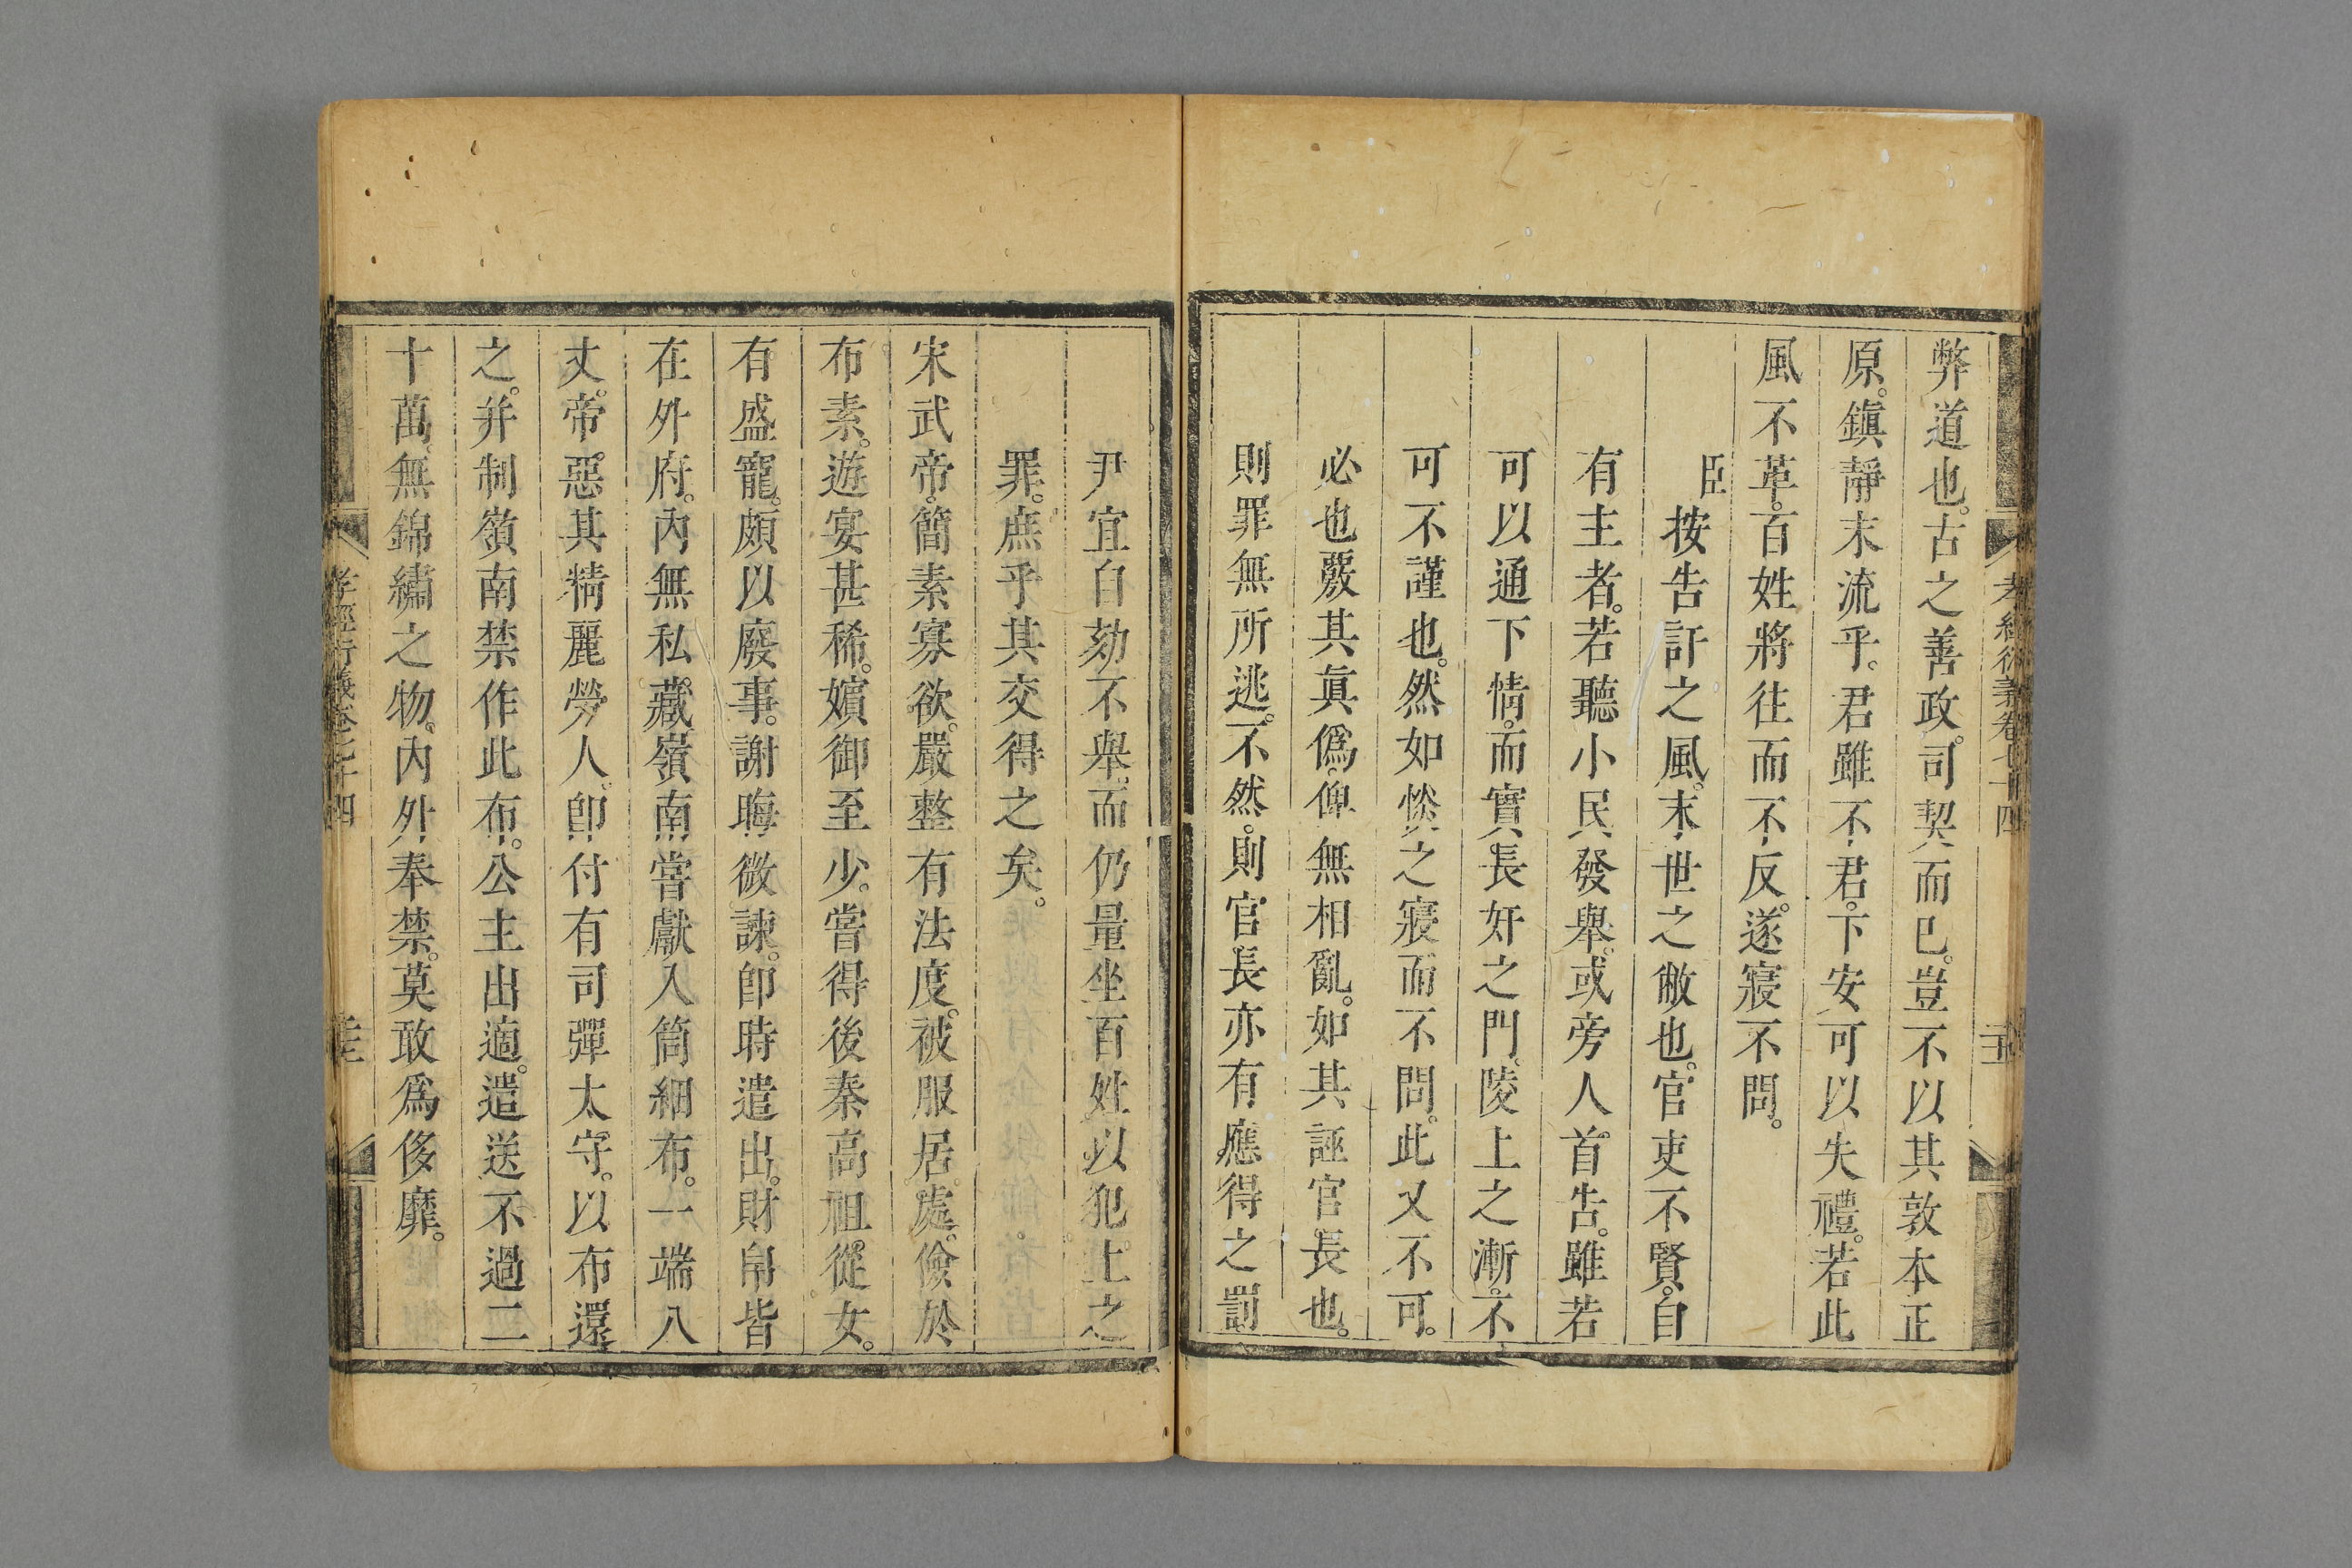 孝經衍義卷七十四
弊道也。古之善政。司契而已。豈不以其敦本正
原。鎭靜末流乎。君雖不君。下安可以失禮。若此
風不革。百姓將往而不反。遂寢不問。
臣按告訐之風。末世之敝也。官吏不賢。自
有主者。若聽小民發舉。或旁人首告。雖若
可以通下情。而實長奸之門。陵上之漸。不
可不謹也。然如惔之寢而不問。此又不可。
必也覈其眞僞。俾無相亂。如其誣官長也。
則罪無所逃。不然。則官長亦有應得之罰
尹宜白劾不舉。而仍量坐百姓以犯上之
罪。庶乎其交得之矣。
宋武帝。簡素寡欲。嚴整有法度。被服居處。儉於
布素。遊宴甚稀。嬪御至少。嘗得後秦高祖從女。
有盛寵。頗以廢事。謝晦微諫。卽時遣出。財帛皆
在外府。內無私藏。嶺南嘗獻入筒細布。一端八
丈。帝惡其精麗勞人。卽付有司彈太守。以布還
之。并制嶺南禁作此布。公主出適。遣送不過二
十萬。無錦繡之物。內外奉禁。莫敢爲侈靡。
孝經衍義卷七十四